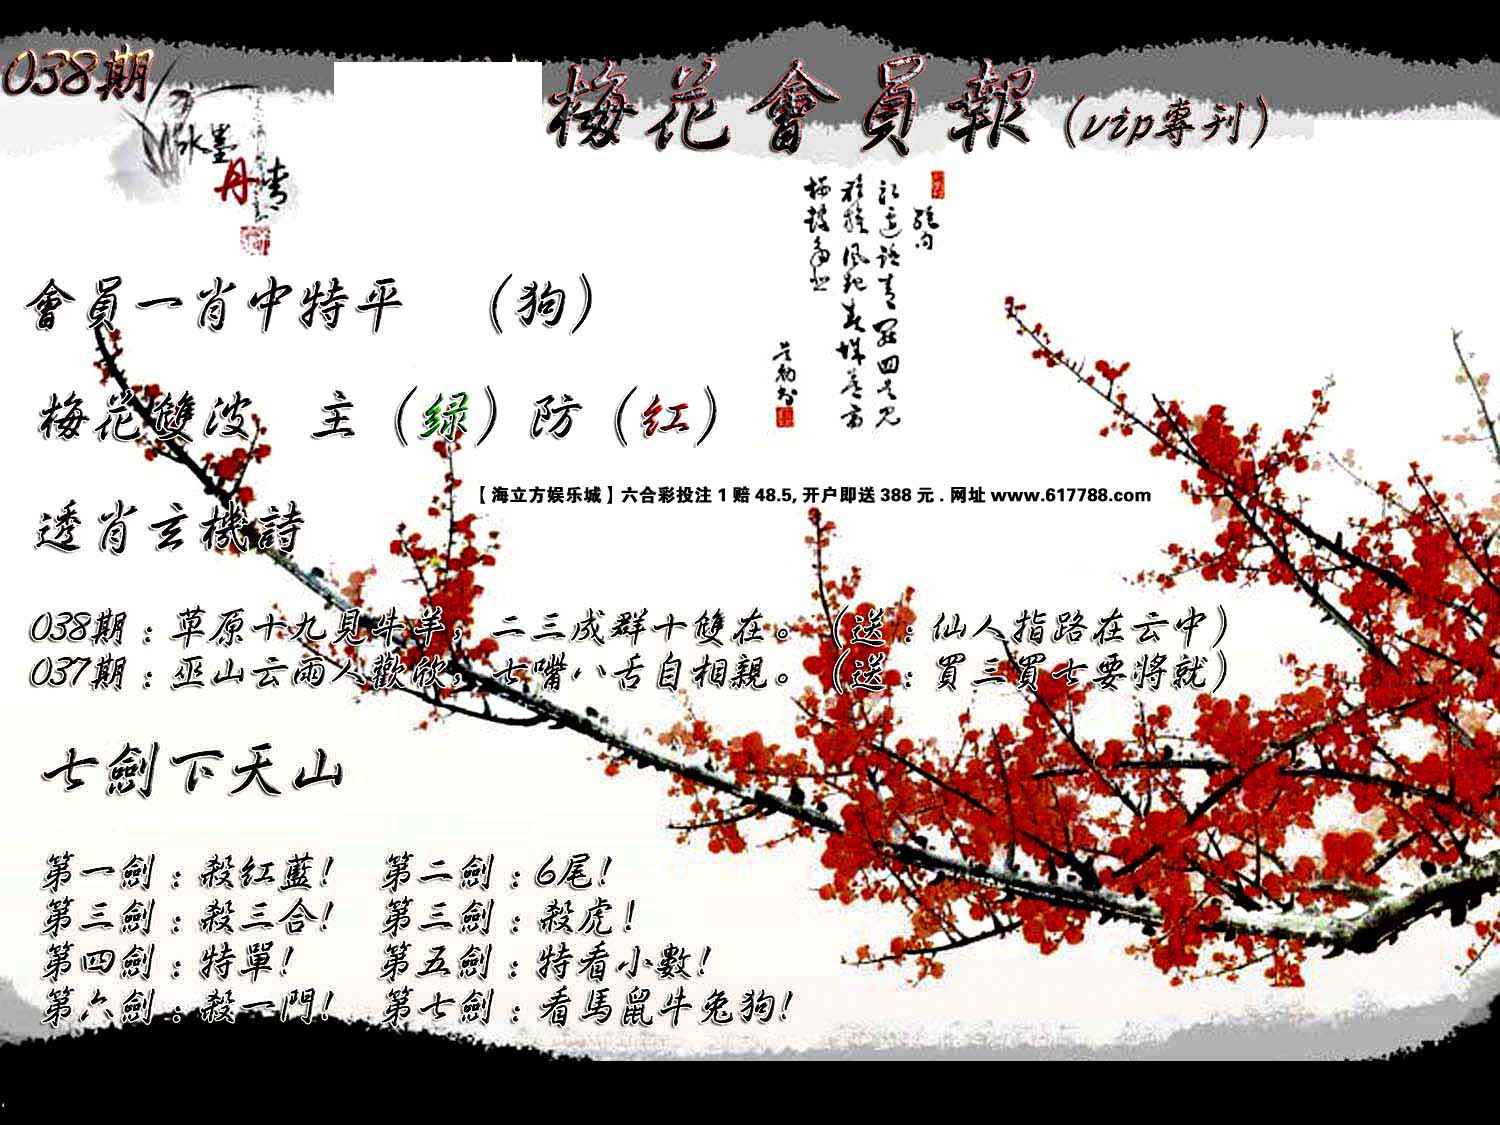 038期
梅花會員報（vip專刊）
水墨
丹青
會員一肖中特平 （狗）
梅花雙波 主（绿）防（红）
【海立方娱乐城】六合彩投注1赔48.5,开户即送388元.网址www.617788.com
透肖玄機詩
038期：草原十九見牛羊，二三成群十雙在。（送：仙人指路在云中）
037期：巫山云雨人歡欣，七嘴八舌自相親。（送：買三買七要將就）
七劍下天山
第一劍：殺红藍! 第二劍：6尾!
第三劍：殺三合! 第三劍：殺虎!
第四劍：特單! 第五劍：特看小數!
第六劍：殺一門! 第七劍：看馬鼠牛兔狗!